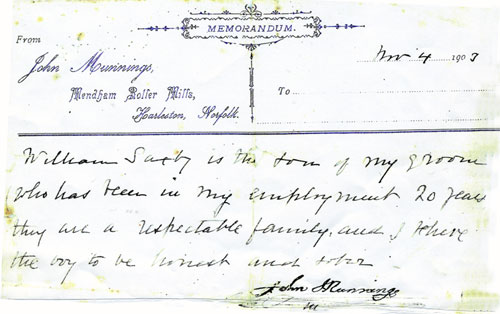 MEMORANDUM.
From
John Munnings,
Mendham Roller Mills,
Harleston, Norfolk.
Nov 4 1903
To
William Saxby is the son of my groom
who has been in my employment 20 years
they are a respectable family, and I believe
the boy to be honest and sober
John Munnings